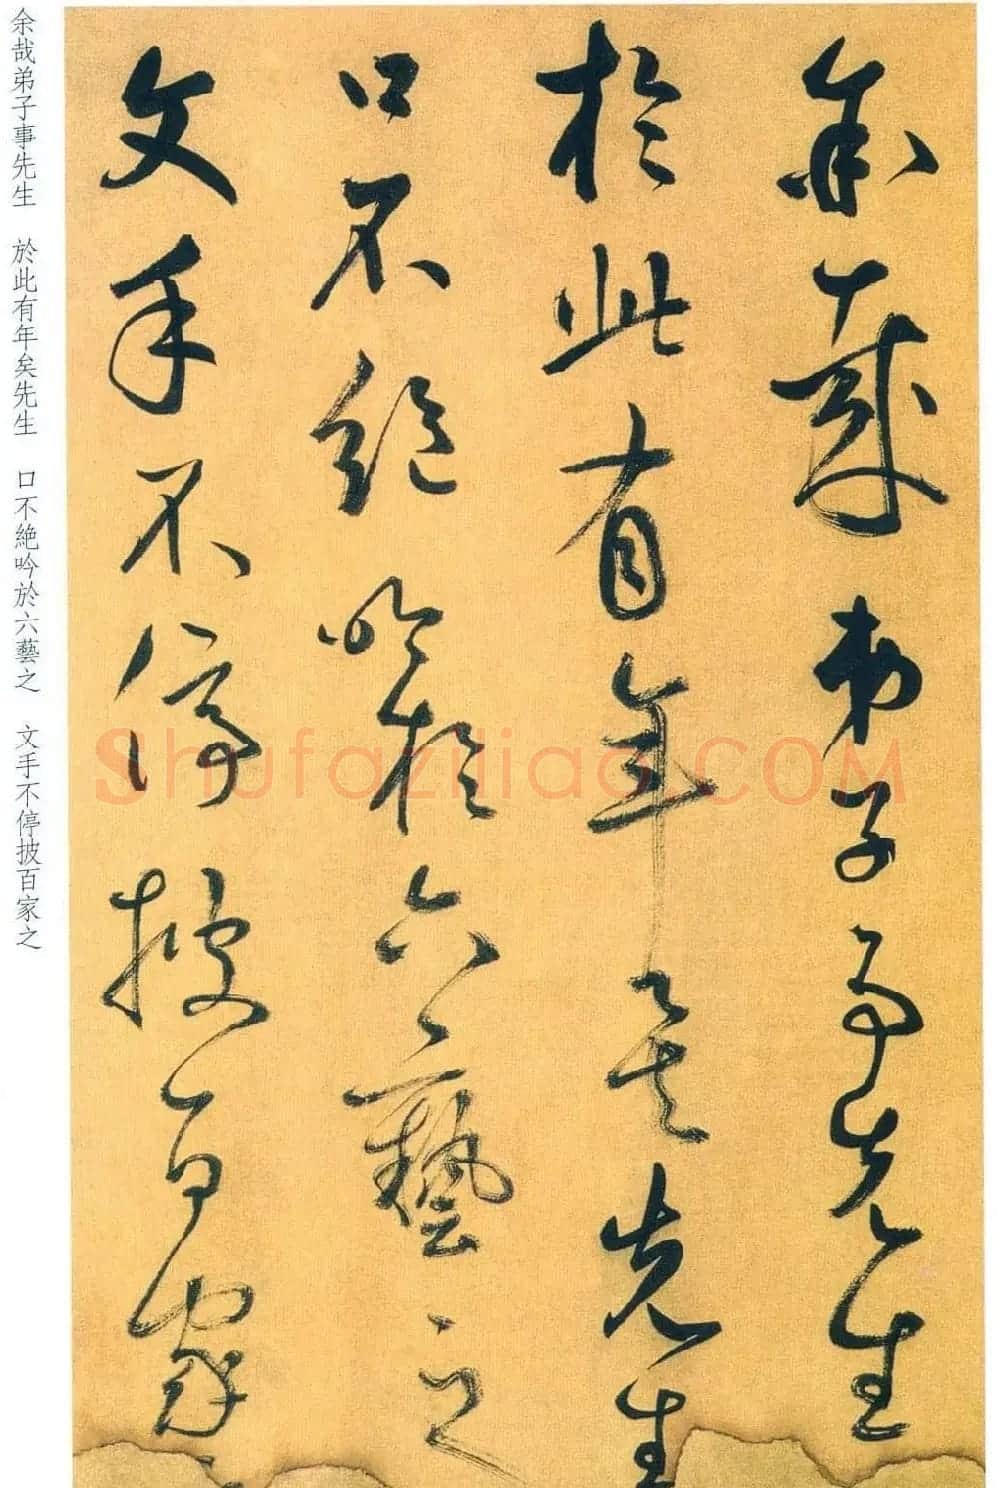 余哉弟子事先生
於此有年矣先生
口不絶吟於六藝之
文手不停披百家之
余哉弟子事先生 於此有年矣先生 口不絶吟於六藝之 文手不停披百家之
Shufaziliao.COM